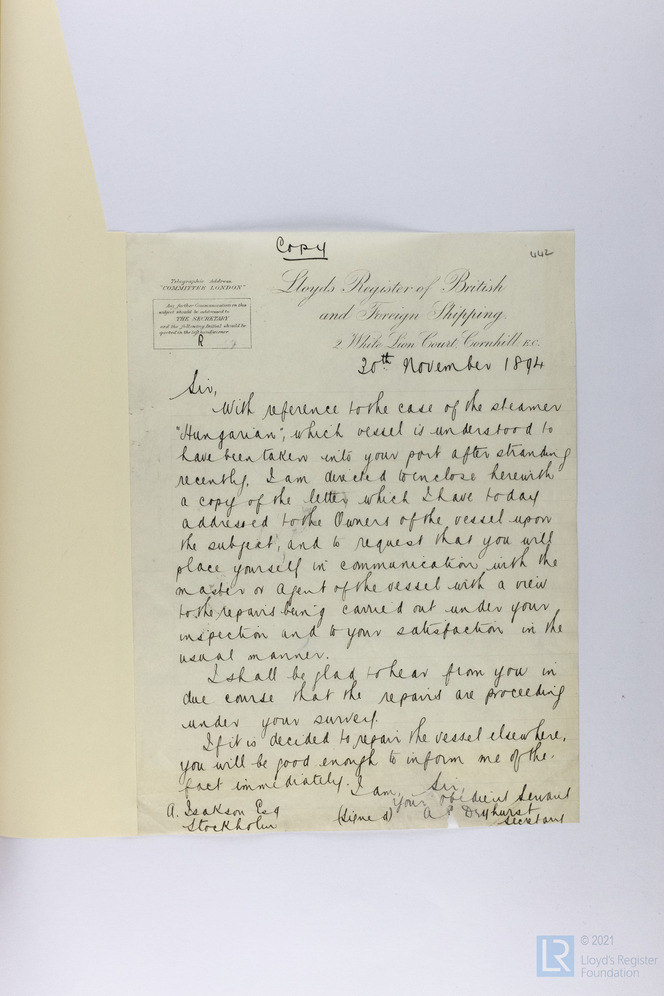 Copy
442
Telegraphic Address,
"COMMITTEE LONDON"
Any further Communication on this
subject should be addressed to
THE SECRETARY
and the following Initial should be
quoted in the left hand corner
R
Lloyds Register of British
and Foreign Shipping.
2, White Lion Court, Cornhill E.C.
30th November 1894
Sir,
With reference to the case of the steamer
"Hungarian", which vessel is understood to
have been taken into your port after stranding
recently, I am directed to enclose herewith
a copy of the letter which I have today
addressed to the Owners of the vessel upon
the subject, and to request that you will
place yourself in communication with the
master or agent of the vessel with a view
to the repairs being carried out under your
inspection and to your satisfaction in the
usual manner.
I shall be glad to hear from you in
due course that the repairs are proceeding
under your survey.
If it is decided to repair the vessel elsewhere,
you will be good enough to inform me of the
fact immediately. I am, Sir,
Your obedient Servant
A. Isakson Esq (Signed) A P Dryhurst
Stockholm Secretary
© 2021
LR Lloyd's Register
Foundation